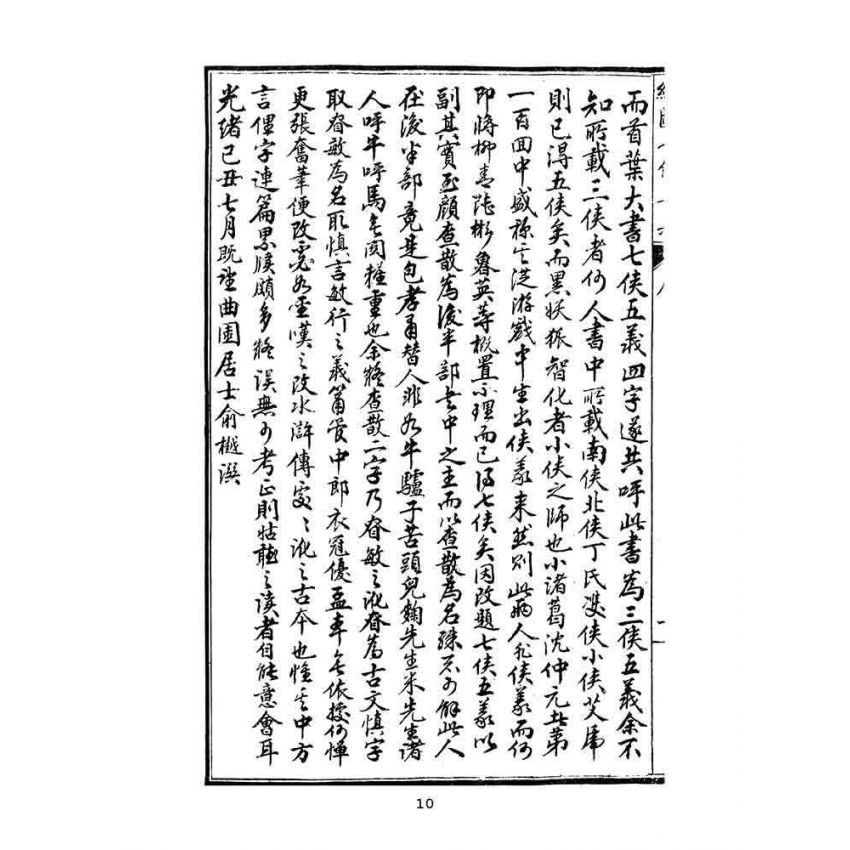 而首葉大書七俠五義四字遂共呼此書為三俠五義余不
知所載三俠者何人書中所載南俠北俠丁氏雙俠小俠艾虎
則已得五俠矣而黑妖狐智化者小俠之師也小諸葛沈仲元此第
一百回中盛稱其從游戲中生出俠義來然則此兩人非俠義而何
即將柳青陸彬魯英等概置不理而已得七俠矣因改題七俠五義以
副其實至顏查散為後半部書中之主而以查散為名殊不可解此人
在後半部竟是包孝肅替人非如牛驢子苦頭兒麴先生米先生諸
人呼牛呼馬無關輕重也余疑查散二字乃昚敏之訛昚為古文慎字
取昚敏為名取慎言敏行之義簫管中郎衣冠優孟本無依據何憚
更張奮筆便改如聖嘆之改水滸傳處〻訛之古本也惟其中方
言俚字連篇累牘頗多疑誤無可考正則姑聽之讀者自能意會耳
光緒己丑七月既望曲園居士俞樾撰
10